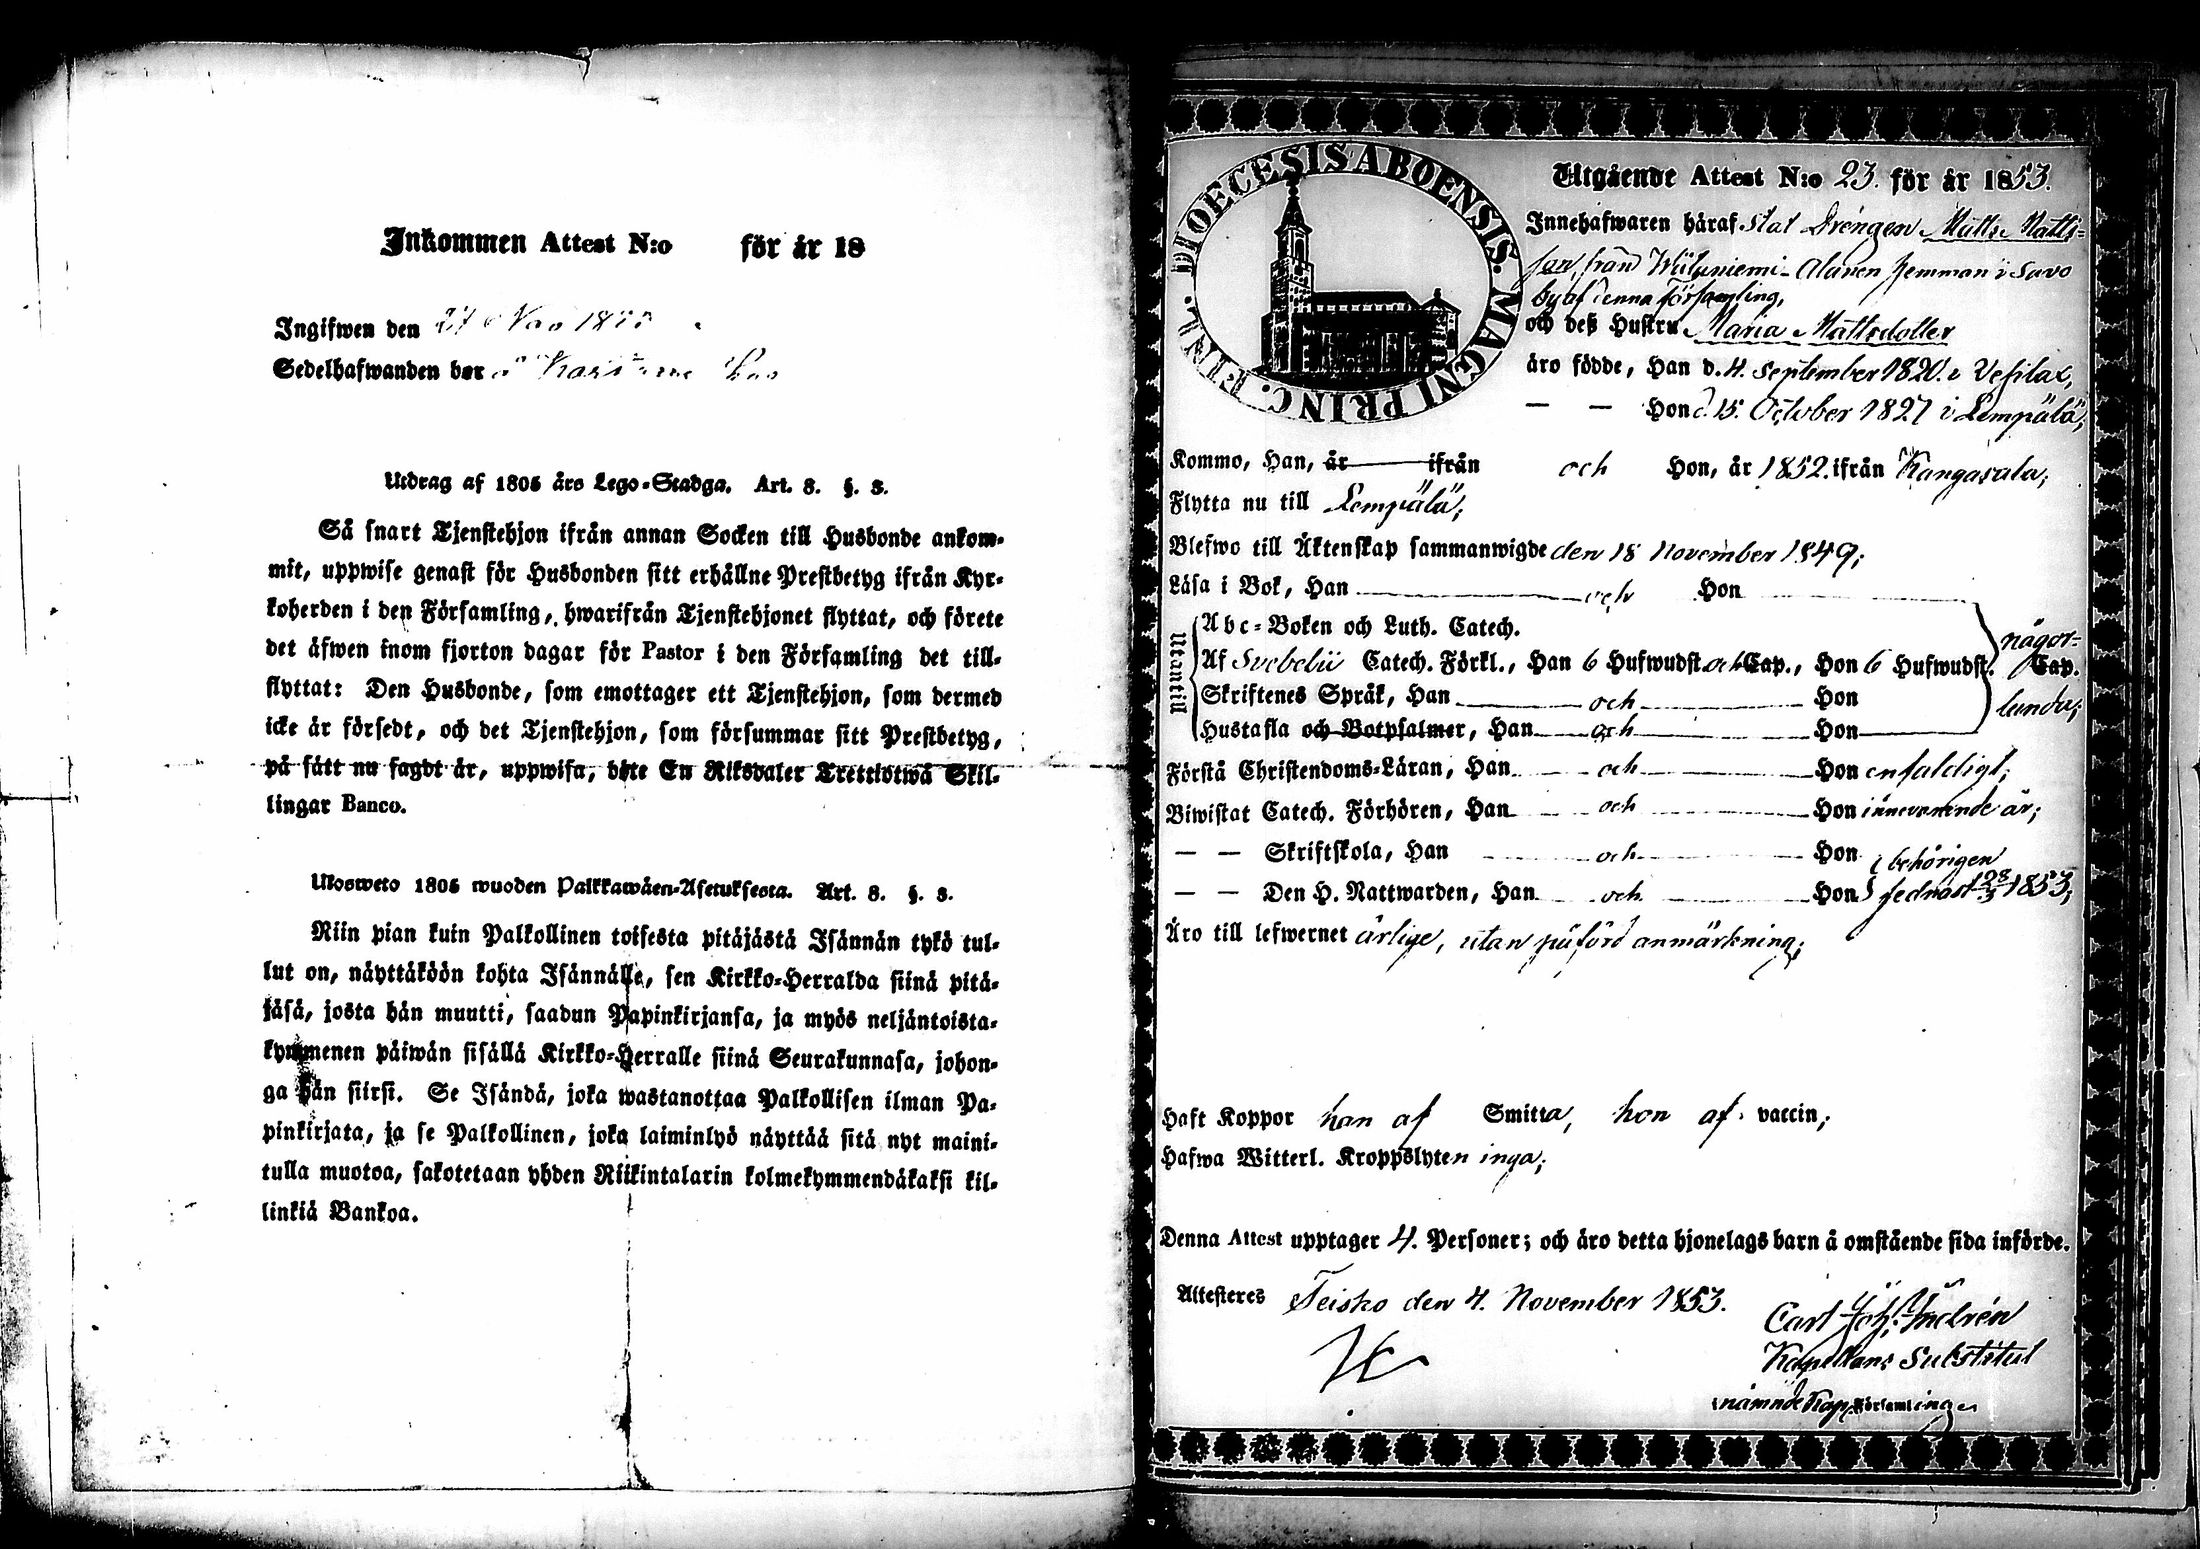 Inkommen Attest N:o för år 18
Ingifwen den 27 Nov 18
Sedelhafwanden bor å
Utdrag af 1805 års Lego-Stadga. Art. 8. §. 3.
Så snart Tjenstehjon ifrån annan Socken till Husbonde ankom-
mit, uppwise genast för Husbonden sitt erhållne Prestbetyg ifrån Kyr-
koherden i den Församling, hwarifrån Tjenstehjonet flyttat, och förete
det äfwen inom fjorton dagar för Pastor i den Församling det till-
flyttat: Den Husbonde, som emottager ett Tjenstehjon, som dermed
icke är försedt, och det Tjenstehjon, som försummar sitt Prestbetyg,
på sätt nu sagdt är, uppwisa, böte En Riksdaler Trettiotwå Skil-
lingar Banco.
Ulosweto 1805 wuoden Palkkawäen-Asetuksesta. Art. 8. §. 3.
Niin pian kuin Palkollinen toisesta pitäjästä Isännän tykö tul-
lut on, näyttäköön kohta Isännälle, sen Kirkko-Herralda siinä pitä-
jäsä, josta hän muutti, saadun Papinkirjansa, ja myös neljäntoista-
kymmenen päiwän sisällä Kirkko-Herralle siinä Seurakunnasa, johon-
ga hän siirsi. Se Isändä, joka wastanottaa Palkollisen ilman Pa-
pinkirjata, ja se Palkollinen, joka laiminlyö näyttää sitä nyt maini-
tulla muotoa, sakotetaan yhden Riikintalarin kolmekymmendäkaksi kil-
linkiä Bankoa.
DIOECESIS ABOENSIS. MAGNI PRINC. FINL.
Utgående Attest N:o 23. för år 1853.
Innehafwaren häraf Stat Drengen Matts Matts-
son, från Alanen hemman i Savo
by af denna församling,
och deß Hustru Maria Mattsdotter
äro födde, Han d. 4. September 1820. i Vesilax,
— — Hon d. 15. October 1827 i Lempälä,
Kommo, Han, år ifrån och Hon, år 1852. ifrån Kangasala;
Flytta nu till Lempälä;
Blefwo till Äktenskap sammanwigde den 18 November 1849;
Läsa i Bok, Han och Hon
Utantill
Abc-Boken och Luth. Catech. någor-
Af Svebelii Catech. Förkl., Han 6 Hufwudst. och Cap., Hon 6 Hufwudst. Cap.
Skriftenes Språk, Han och Hon lunda;
Hustafla och Botpsalmer, Han och Hon
Förstå Christendoms-Läran, Han och Hon enfaldigt;
Biwistat Catech. Förhören, Han och Hon innevarande år;
— — Skriftskola, Han och Hon behörigen
— — Den H. Nattwarden, Han och Hon sednast 28/3 1853;
Äro till lefwernet ärlige, utan påförd anmärkning;
Haft Koppor han af Smitta, hon af vaccin;
Hafwa Witterl. Kroppslyten inga;
Denna Attest upptager 4. Personer; och äro detta hjonelags barn å omstående sida införde.
Attesteres Teisko den 4. November 1853.
Carl Joh.
Kapellans Substitut
i nämnde Kap. Församling